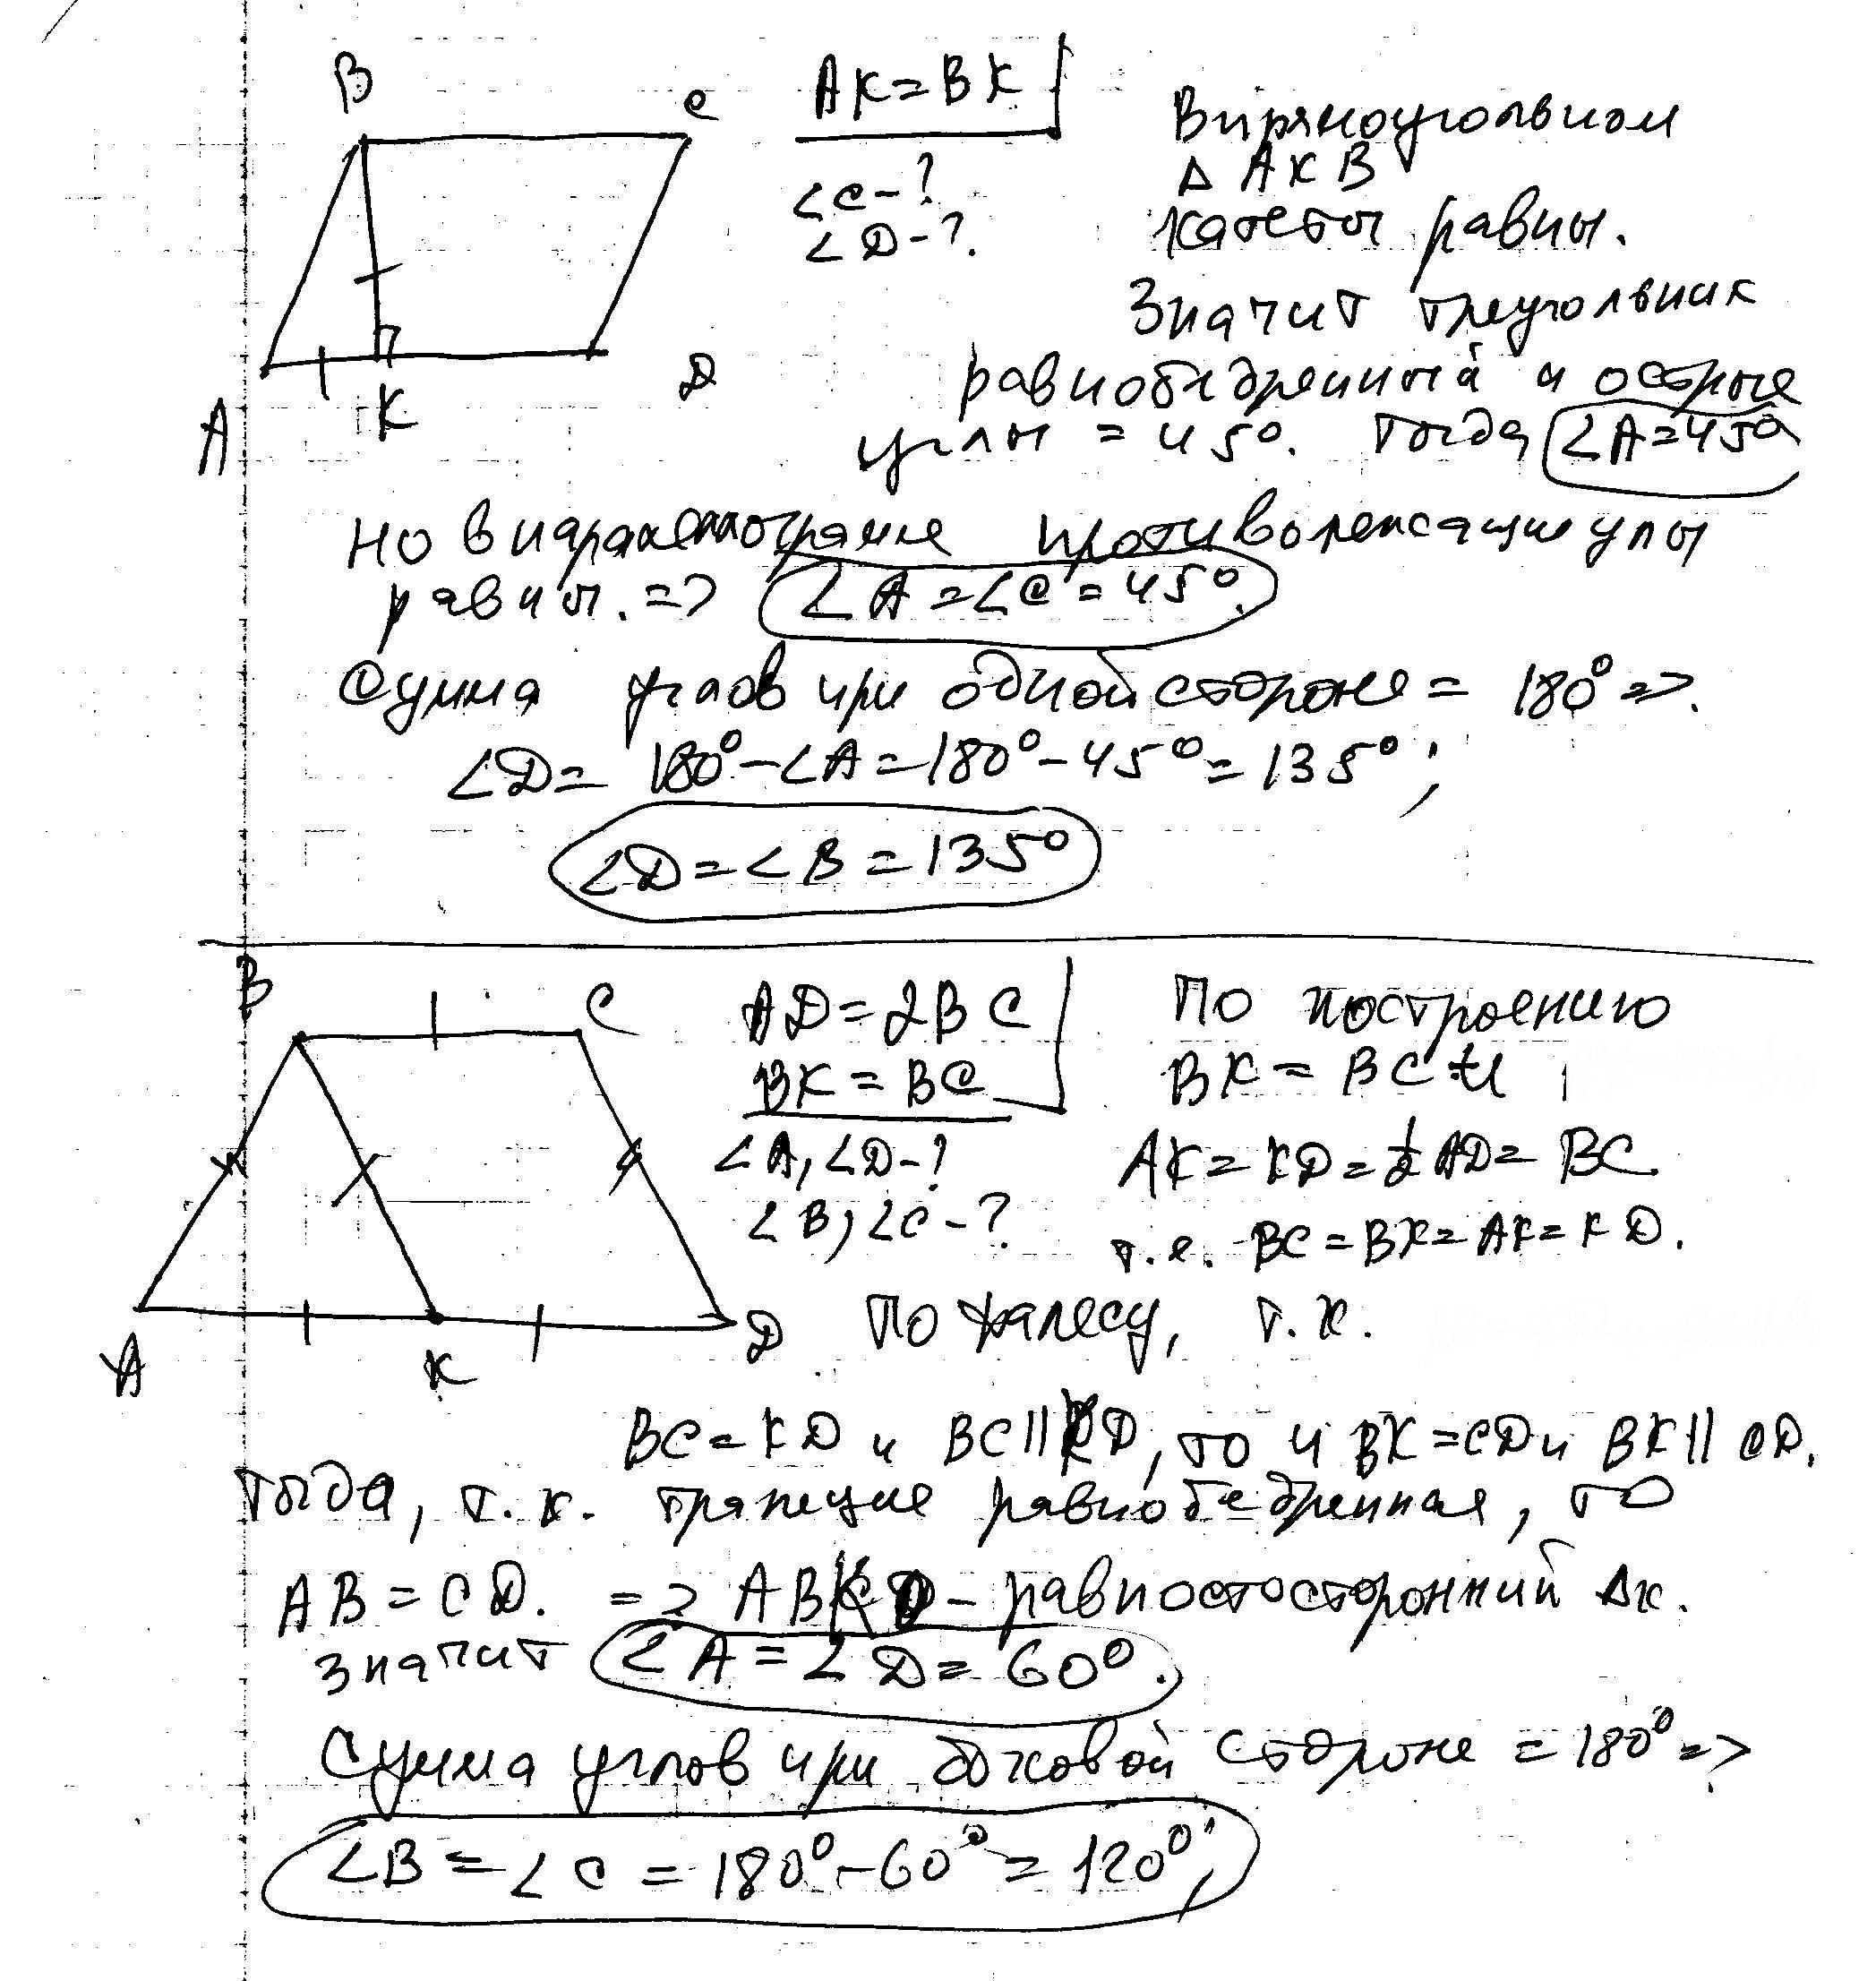 B
C
A
K
D
AK = BK
∠C - ?
∠D - ?
В прямоугольном
Δ AKB
катеты равны.
Значит треугольник
равнобедренный и острые
углы = 45°. Тогда ∠A = 45°
Но в параллелограмме противолежащие углы
равны. => ∠A = ∠C = 45°.
Сумма углов при одной стороне = 180° =>.
∠D = 180° - ∠A = 180° - 45° = 135°;
∠D = ∠B = 135°
B
C
A
K
D
AD = 2BC
BK = BC
∠A, ∠D - ?
∠B, ∠C - ?
По построению
BK = BC и
AK = KD = 1/2 AD = BC
т.е. BC = BK = AK = KD.
По Фалесу, т.к.
BC = KD и BC || KD, то и BK = CD и BK || CD.
Тогда, т.к. трапеция равнобедренная, то
AB = CD. => ABK - равностосторонний Δк.
Значит ∠A = ∠D = 60°.
Сумма углов при боковой стороне = 180° =>
∠B = ∠C = 180° - 60° = 120°;